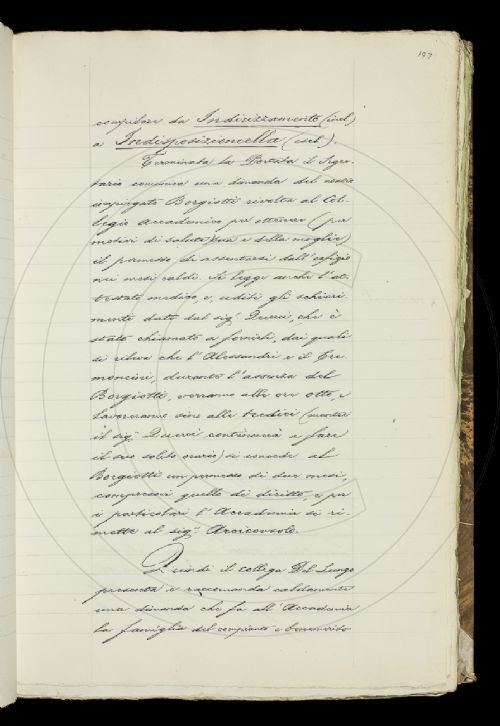 197
compilare da Indirizzamento (incl.)
a Indisposizioncella (incl.).
Terminata la Portata il Segre-
tario comunica una domanda del nostro
impiegato Borgiotti rivolta al Col-
legio Accademico per ottenere (per
motivi di salute sua e della moglie)
il permesso di assentarsi dall'ufizio
nei mesi caldi. Si legge anche l'at-
testato medico, e, uditi gli schiari-
menti dati dal sig.r Querci, che è
stato chiamato a fornirli, dai quali
si rileva che l'Alessandri e il Cre-
moncini, durante l'assenza del
Borgiotti, verranno alle ore otto, e
lavoreranno sino alle tredici (mentre
il sig.r Querci continuerà a fare
il suo solito orario) si concede al
Borgiotti un permesso di due mesi,
compresovi quello di diritto, e per
i particolari l'Accademia si ri-
mette al sig.r Arciconsolo.
Quindi il collega Del Lungo
presenta e raccomanda caldamente
una domanda che fa all'Accademia
la famiglia del compianto e benemerito